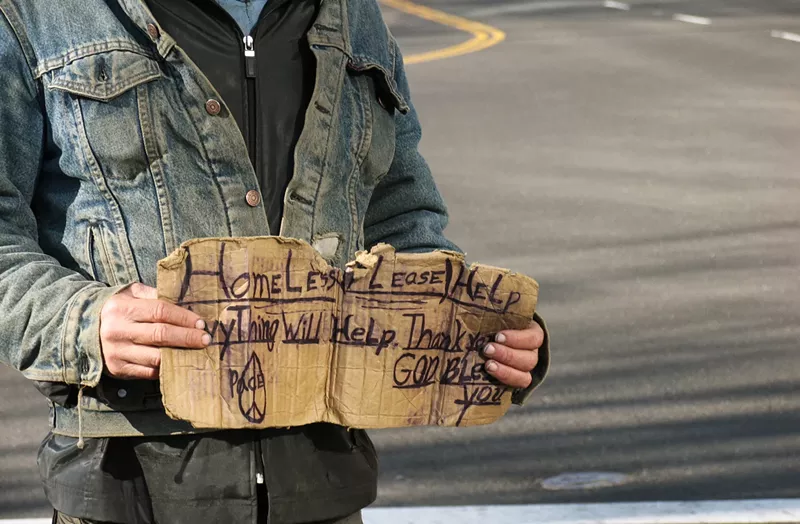 HomeLess PLease HeLp
AnyThing Will HeLp. Thank you
GOD BLess
you
Peace